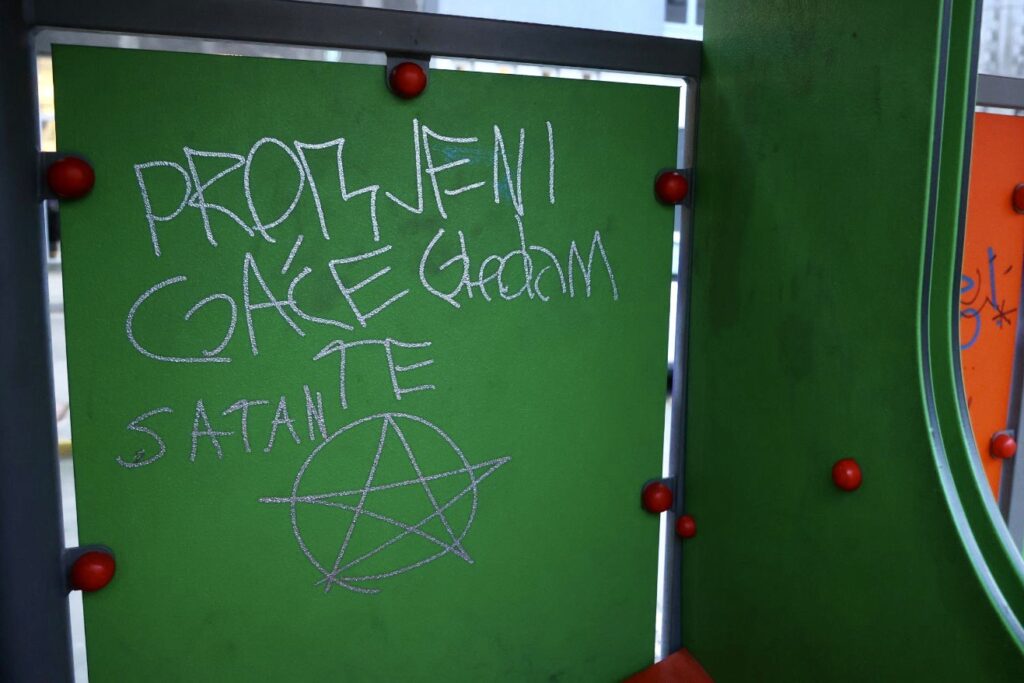 PROMJENI
GAĆE Gledam
TE
SATAN